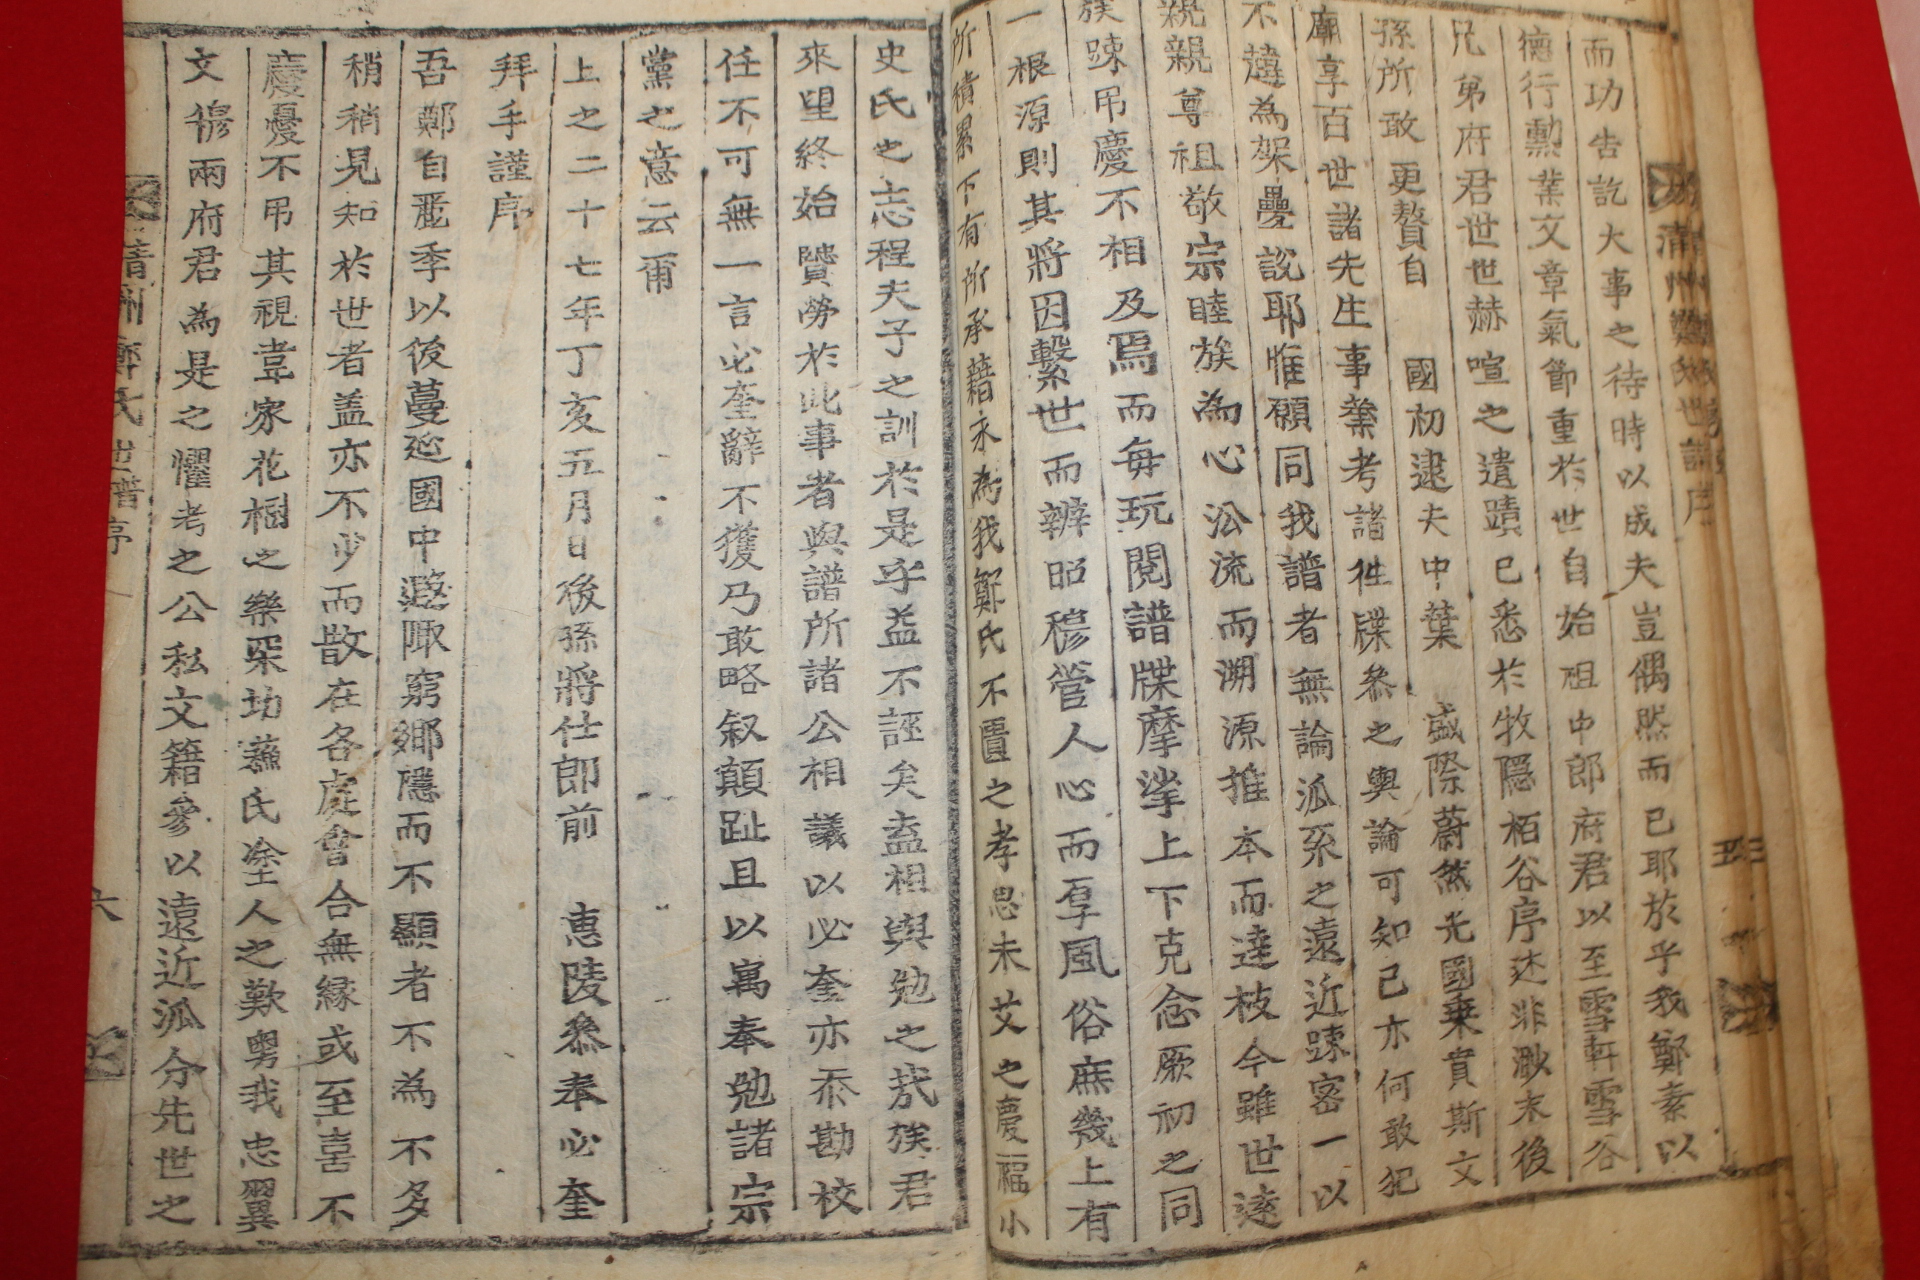 而功告訖大事之待時以成夫豈偶然而已耶於乎我鄭素以
德行勳業文章氣節重於世自始祖中郎府君以至雪軒雪谷
兄弟府君世世赫喧之遺蹟已悉於牧隱栢谷序述非渺末後
孫所敢更贅自 國初逮夫中葉 盛際蔚然光國乗賁斯文
廟享百世諸先生事業考諸牲牒叅之輿論可知已亦何敢犯
不韙為架疊說耶惟願同我譜者無論泒系之遠近踈密一以
親親尊祖敬宗睦族為心沿流而溯源推本而達枝今雖世遠
族踈吊慶不相及焉而每玩閱譜牒摩挲上下克念厥初之同
一根源則其將因繫世而辨昭穆管人心而厚風俗庶幾上有
所積累下有所承藉永為我鄭氏不匱之孝思未艾之慶福小
史氏之志程夫子之訓於是乎益不誣矣盍相與勉之㢤族君
來望終始賛勞於此事者與譜所諸公相議以必奎亦忝勘校
任不可無一言必奎辭不獲乃敢略叙顛趾且以寓奉勉諸宗
黨之意云爾
上之二十七年丁亥五月日後孫將仕郎前 惠陵叅奉必奎
拜手謹序
吾鄭自麗季以後蔓延國中遐陬窮鄉隱而不顯者不為不多
稍稍見知於世者盖亦不少而散在各處會合無緣或至喜不
慶憂不吊其視韋家花樹之樂罙切蘓氏塗人之歎粤我忠翼
文穆兩府君為是之懼考之公私文籍參以遠近泒分先世之
晉州鄭氏世譜序
六